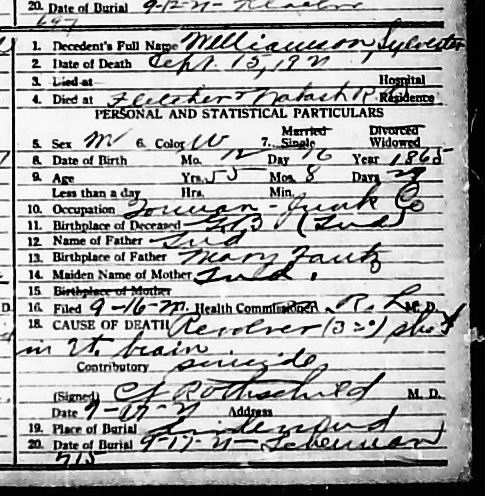 20. Date of Burial 9-12-21-
697
1. Decedent's Full Name Williamson, Sylvester
2. Date of Death Sept. 15, 1921
3. Lived at Hospital
4. Died at Fletcher + Wabash R.R. Residence
PERSONAL AND STATISTICAL PARTICULARS
Married Divorced
5. Sex M 6. Color W 7. Single Widowed
8. Date of Birth Mo. 12 Day 16 Year 1865
9. Age Yrs. 55 Mos. 8 Days 29
Less than a day Hrs. Min.
10. Occupation - Junk Co
11. Birthplace of Deceased (Ind)
12. Name of Father Ind
13. Birthplace of Father Mary
14. Maiden Name of Mother Ind.
15. Birthplace of Mother
16. Filed 9-16-21. Health Commissioner R. L. M. D.
18. CAUSE OF DEATH Revolver (32) shot
in rt. brain
Contributory suicide
(Signed) Rothschild M. D.
Date 9-17-21 Address
19. Place of Burial Lindenwood
20. Date of Burial 9-17-21-
715